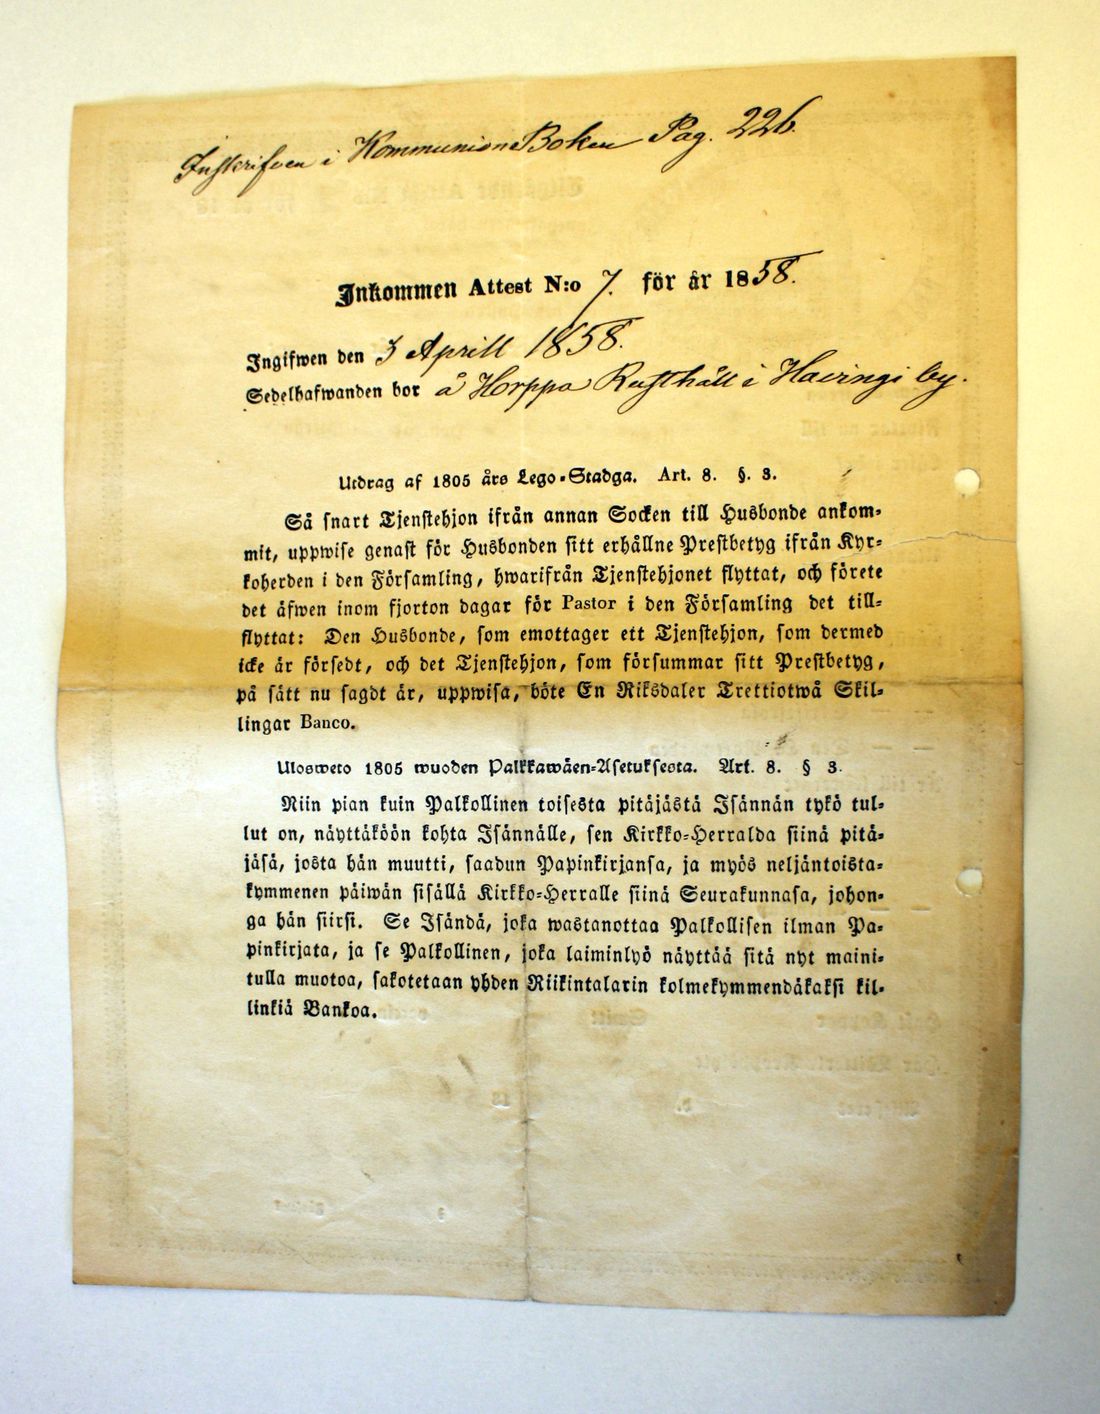 Inskrifven i Kommunion Boken Pag. 226.
Inkommen Attest N:o 7. för år 1858.
Ingifwen den 3 Aprill 1858.
Sedelhafwanden bor å Horppo Rusthåll i Havingi by.
Utdrag af 1805 års Lego-Stadga. Art. 8. §. 3.
Så snart Tjenstehjon ifrån annan Socken till Husbonde ankom-
mit, uppwise genast för Husbonden sitt erhållne Prestbetyg ifrån Kyr-
koherden i den Församling, hwarifrån Tjenstehjonet flyttat, och förete
det äfwen inom fjorton dagar för Pastor i den Församling det till-
flyttat: Den Husbonde, som emottager ett Tjenstehjon, som dermed
icke är försedt, och det Tjenstehjon, som försummar sitt Prestbetyg,
på sätt nu sagdt är, uppwisa, böte En Riksdaler Trettiotwå Skil-
lingar Banco.
Ulosweto 1805 wuoden Palkkawäen-Asetuksesta. Art. 8. § 3.
Niin pian kuin Palkollinen toisesta pitäjästä Isännän tykö tul-
lut on, näyttäköön kohta Isännälle, sen Kirkko-Herralda siinä pitä-
jäsä, josta hän muutti, saadun Papinkirjansa, ja myös neljäntoista-
kymmenen päiwän sisällä Kirkko-Herralle siinä Seurakunnasa, johon-
ga hän siirsi. Se Isändä, joka wastanottaa Palkollisen ilman Pa-
pinkirjata, ja se Palkollinen, joka laiminlyö näyttää sitä nyt maini-
tulla muotoa, sakotetaan yhden Riikintalarin kolmekymmendäkaksi kil-
linkiä Bankoa.